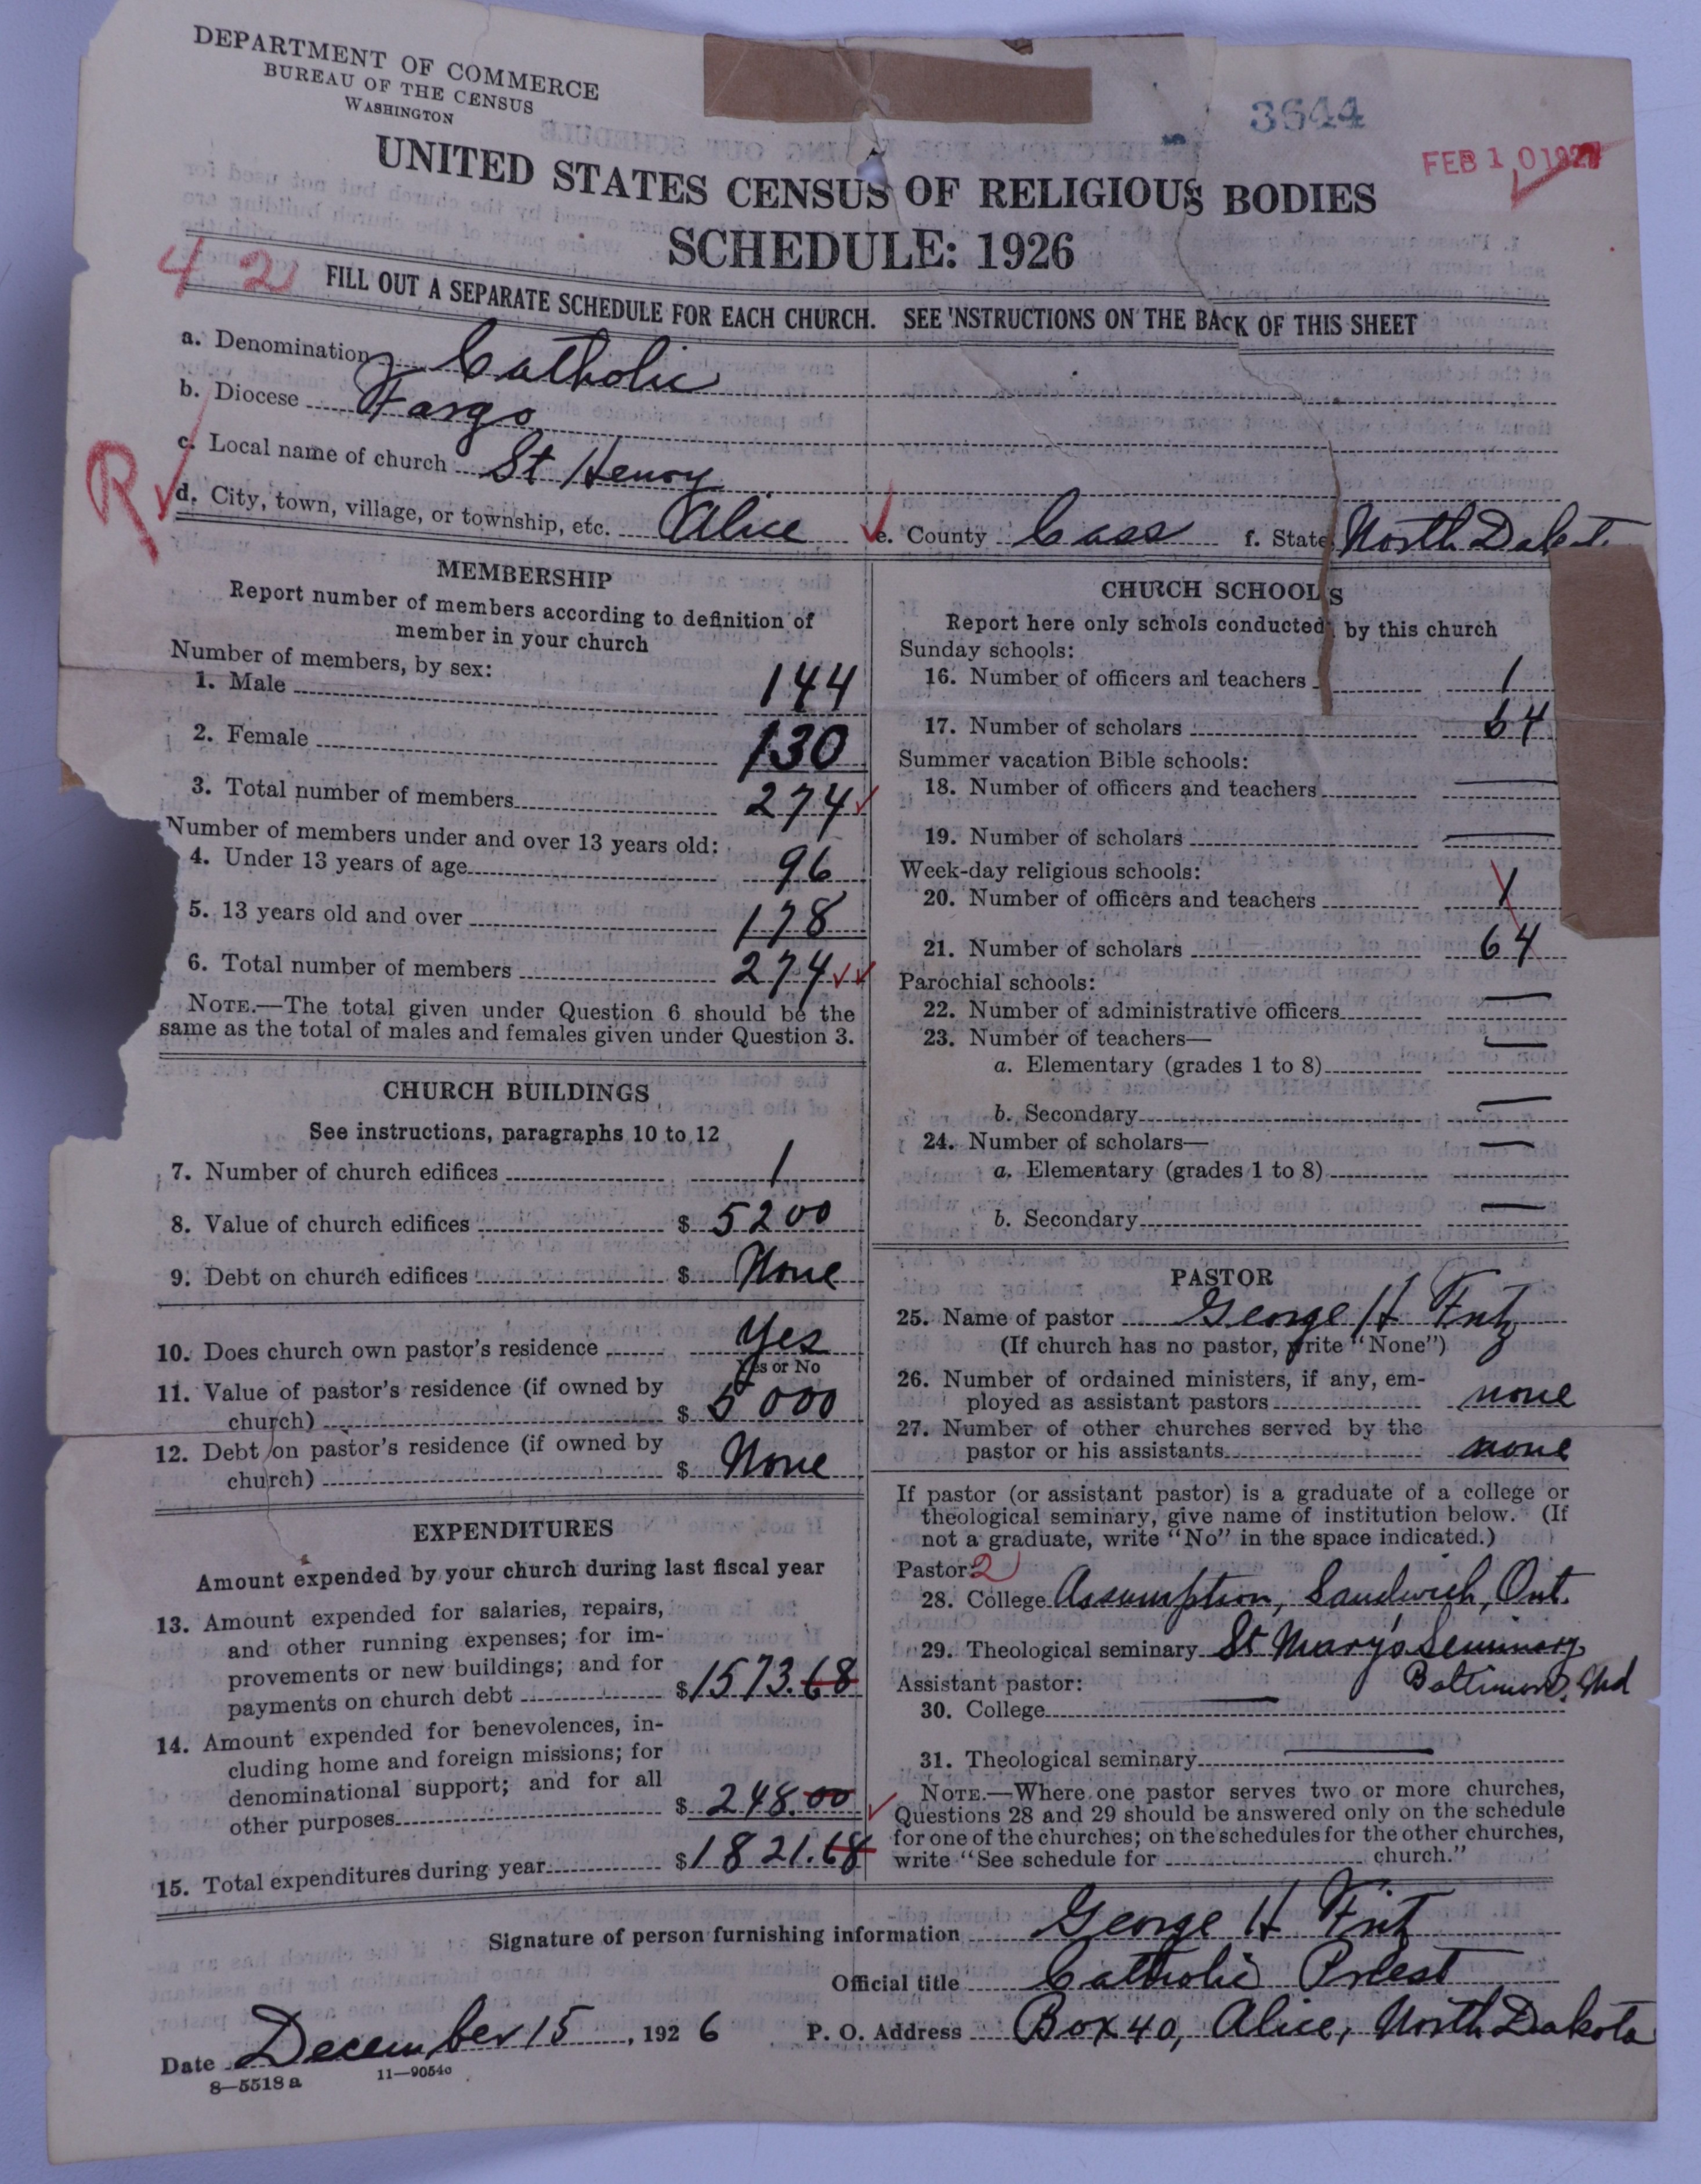 DEPARTMENT OF COMMERCE
BUREAU OF THE CENSUS
WASHINGTON
3644
FEB 10 1927
UNITED STATES CENSUS OF RELIGIOUS BODIES
SCHEDULE: 1926
42
FILL OUT A SEPARATE SCHEDULE FOR EACH CHURCH. SEE INSTRUCTIONS ON THE BACK OF THIS SHEET
a. Denomination Catholic
b. Diocese Fargo
c. Local name of church St Henry
R
d. City, town, village, or township, etc. Alice e. County Cass f. State North Dakot.
MEMBERSHIP
Report number of members according to definition of
member in your church
Number of members, by sex:
1. Male 144
2. Female 130
3. Total number of members 274
Number of members under and over 13 years old:
4. Under 13 years of age 96
5. 13 years old and over 178
6. Total number of members 274
NOTE.—The total given under Question 6 should be the
same as the total of males and females given under Question 3.
CHURCH BUILDINGS
See instructions, paragraphs 10 to 12
7. Number of church edifices 1
8. Value of church edifices $ 5200
9. Debt on church edifices $ None
10. Does church own pastor's residence Yes
Yes or No
11. Value of pastor's residence (if owned by
church) $ 5000
12. Debt on pastor's residence (if owned by
church) $ None
EXPENDITURES
Amount expended by your church during last fiscal year
13. Amount expended for salaries, repairs,
and other running expenses; for im-
provements or new buildings; and for
payments on church debt $ 1573.68
14. Amount expended for benevolences, in-
cluding home and foreign missions; for
denominational support; and for all
other purposes $ 248.00
15. Total expenditures during year $ 1821.68
CHURCH SCHOOLS
Report here only schools conducted by this church
Sunday schools:
16. Number of officers and teachers 1
17. Number of scholars 64
Summer vacation Bible schools:
18. Number of officers and teachers —
19. Number of scholars —
Week-day religious schools:
20. Number of officers and teachers 1
21. Number of scholars 64
Parochial schools:
22. Number of administrative officers —
23. Number of teachers—
a. Elementary (grades 1 to 8) —
b. Secondary —
24. Number of scholars—
a. Elementary (grades 1 to 8) —
b. Secondary —
PASTOR
25. Name of pastor George H Fritz
(If church has no pastor, write "None")
26. Number of ordained ministers, if any, em-
ployed as assistant pastors none
27. Number of other churches served by the
pastor or his assistants none
If pastor (or assistant pastor) is a graduate of a college or
theological seminary, give name of institution below. (If
not a graduate, write "No" in the space indicated.)
Pastor: 2
28. College Assumption, Sandwich, Ont.
29. Theological seminary St Mary's Seminary
Baltimore, Md
Assistant pastor:
30. College —
31. Theological seminary —
NOTE.—Where one pastor serves two or more churches,
Questions 28 and 29 should be answered only on the schedule
for one of the churches; on the schedules for the other churches,
write "See schedule for church."
Signature of person furnishing information George H Fritz
Official title Catholic Priest
Date December 15, 1926 P. O. Address Box 40, Alice, North Dakota
8—5518a 11—9054c